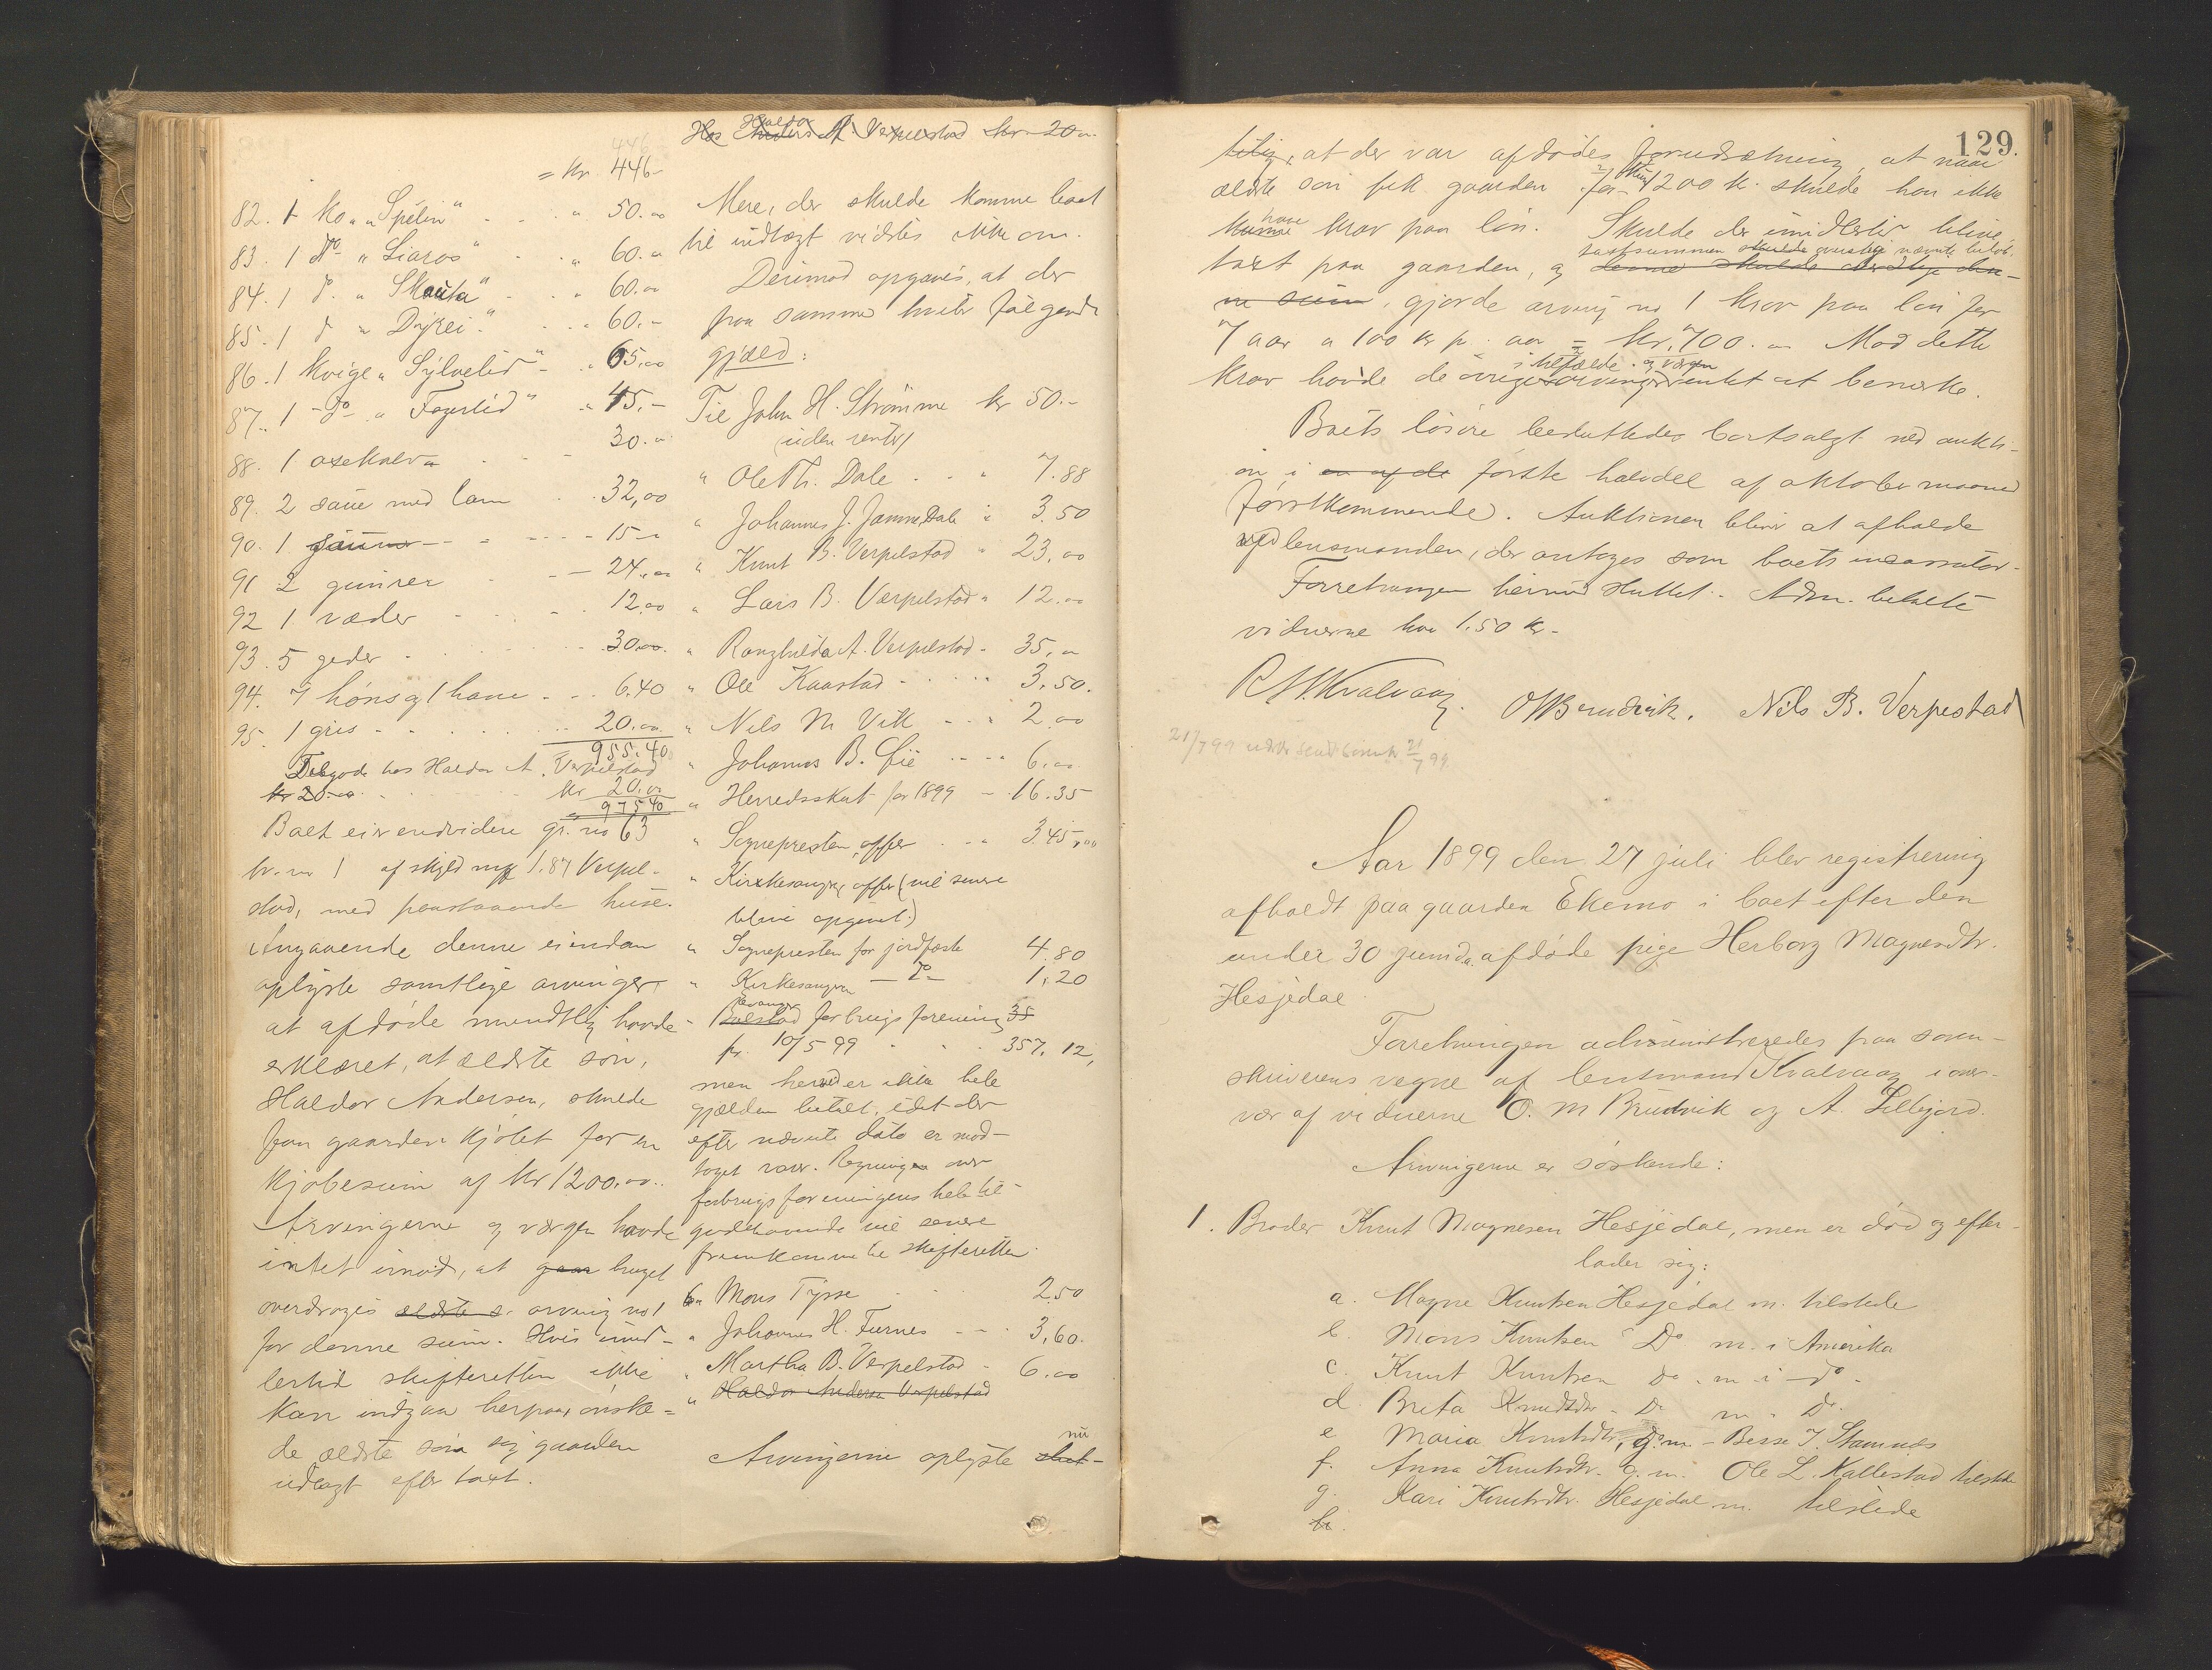 446
= Kr 446-
82. 1 ko "Spélin" - - " 50.00
83. 1 do "Liaros" - " 60.00
84. 1 d. "Skauta" - " 60.00
85. 1 d "Dyrei" - " 60.-
86. 1 kvige "Sylvelid" - " 65.00
87. 1 do "Fagerlid" " 45.-
88. 1 oxekalv - - 30.00
89. 2 saue med lam - 32,00
90. 1 - - - 15-
91 2 gimrer - - 24.00
92 1 væder - - 12.00
93. 5 geder - - 30.00
94. 7 høns og 1 hane - - 6.40
95. 1 gris - - 20.00
955.40
Tilgode hos Haldor A. Verpelstad
kr 20.00 - - kr 20.00
975 40
Boet eier endvidere gr. no 63
br. no 1 af skyld mrk 1.87 Verpel-
stad, med paastaaende huse.
Angaaende denne eiendom
oplyste samtlige arvinger
at afdøde mundtlig havde
erklæret, at ældste søn,
Haldor Andersen, skulde
faa gaarden kjøbt for en
kjøbesum af kr 1200.00.
Arvingerne og værgen havde
intet imod, at gaar bruget
overdroges ældste s. arving no 1
for denne sum. Hvis imid-
lertid skifteretten ikke
kan indgaa herpaa, ønske-
de ældste søn sig gaarden
udlagt efter taxt.
Hos Anders Haldor A. Verpelstad kr 20.
Mere, der skulde komme boet
til indtægt vidstes ikke om.
Derimod opgaves, at der
paa samme hviler følgende
gjæld:
Til John H. Strømme kr 50.-
(uden renter)
" Ole Th. Dale - - " 7.88
" Johannes J. Jamne Dale " 3.50
" Knut B. Verpelstad " 23.00
" Lars B. Verpelstad " 12.00
" Ranghilda A. Verpelstad - 35.00
" Ole Kaastad - - - 3.50.
" Nils M. Vik - - - 2.00
" Johannes B. - - 6.00
" Herredsskat for 1899 - 16.35
" Sognepresten, offer - - 345,00
" Kirkesanger, offer (vil senere
blive opgivet.)
" Sognepresten for jordfæste 4.80
" Kirkesangeren - do - 1.20
" forbrugsforening 35
pr. 10/5 99 - - 357.12,
men herved er ikke hele
gjælden betalt, idet der
efter nævnte dato er mod-
taget varer. Regningen over
forbrugsforeningens hele til-
godehavende vil senere
fremkomme til skifteretten.
" Mons Tysse - - 2.50
" Johannes H. Furnes - - 3.60.
" Martha B. Verpelstad - 6.00
" Haldor Andersen Verpelstad
Arvingerne oplyste nu slut-
129.
telig, at der var afdødes forudsætning, at naar
ældste søn fik gaarden for kun 1200 k. skulde han ikke
kunne have krav paa løn. Skulde der imidlertid blive
taxtsummen skulde overstige nævnte beløb,
taxt paa gaarden, og denne skulde overstige den-
ne sum, gjorde arving no 1 krav paa løn for
7 aar a 100 kr pr. aar = kr. 700.00 Mod dette
i tilfælde og værgen
krav havde de øvrige arvinger intet at bemerke.
Boets løsøre besluttedes bortsolgt ved aukti-
on i en af de første halvdel af oktober maaned
førstkommende. Auktionen bliver at afholde
ved lensmanden, der antages som boets incassator.
Forretningen hermed sluttet. Adm. betalte
vidnerne hver 1.50 kr.
R M. Kvalvaag. O M Brudvik. Nils B. Verpestad
21/7 99 21/7 99
Aar 1899 den 27 juli blev registrering
afholdt paa gaarden Ekemo i boet efter den
under 30 juni d.a. afdøde pige Herborg Magnesdtr.
Hesjedal
Forretningen administreredes paa soren-
skriverens vegne af lensmand Kvalvaag i over-
vær af vidnerne O. M Brudvik og A. Lillejord.
Arvingerne er søskende:
1. Broder Knut Magnesen Hesjedal, men er død og efter-
lader sig:
a. Magne Knutsen Hesjedal m. tilstede
b. Mons Knutsen Do m. i Amerika
c. Knut Knutsen Do. m i do -
d. Breta Knudsdtr - D. m " Do.
e Maria Knutsdtr, g. m. - Berse J. Stamnes
f. Anna Knutsdtr. g. m. Ole L. Kallestad tilstede
g. Kari Knutsdtr. Hesjedal m. tilstede
h.